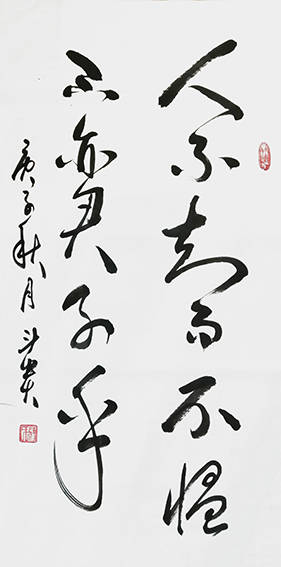 人不知而不愠
不亦君子乎
庚子秋月